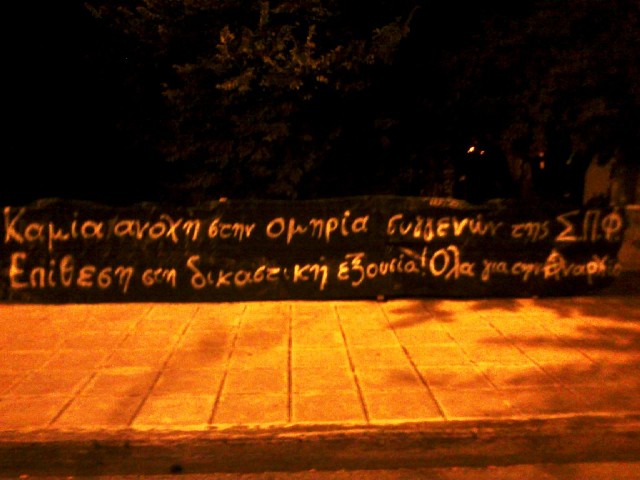 Καμία ανοχή στην ομηρία συγγενών της ΣΠΦ
Επίθεση στη δικαστική εξουσία! Όλα για την